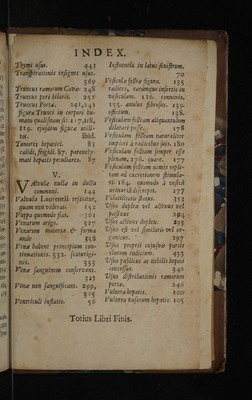 INDEX.
Thymi usus. 441
Transpirationis insignis usus. 360
Truncus ramorum Cavæ. 248
Truncus pori bilarii. 251
Truncus Portæ. 241,242
figura Trunci in corpore humano qualis sit. 117,118,
119. ejusdem figuræ utilitas. Ibid.
Tumores hepatici. 85
calidi, frigidi. 87. parenchymati hepatis peculiares. 87
V.
Valvula nulla in ductu communi. 144
Valvula Laurentii rejicitur, quam non tolerat. 152
Vappa quomodo fiat. 301
Venarum usus. 327
Venarum materia & forma unde 338
Vena habent principium continuationis. 332. scaturiginis. 333
Venæ sanguinem conservant. 325
Venæ non sanguificant. 299,
325
Ventriculi inflatio. 56
Influentia in latus sinistrum. 70
Vesicula fellea figura. 135
radices, earumque insertio in vesiculam. 126. connexio,
155. annulus fibrosus. 139.
officium. 138.
Vesiculam felleam aliquantulum dilatari posse. 178
Vesiculam felleam naturaliter impleri à radicibus suis. 180
Vesiculam felleam semper esse plenam, 176. quare. 177
Vesiculam felleam vomitu repulsam ad excretionem stimulari 164. quomodo à vesica urinaria discrepet. 177
Volatilitatis flatus. 312
Usus duplex vel activus vel passivus 295
Usus activus duplex. 205
Usus est vel similaris vel organicus. 297
Usus proprii cujusvis partis claram indicium. 433
Usus publicus ac nobilis hepati concessus. 340
Usus distributionis ramorum portæ. 246
Vulnera hepatis. 100
Vulnera vasorum hepatis. 105
Totius Libri Finis.